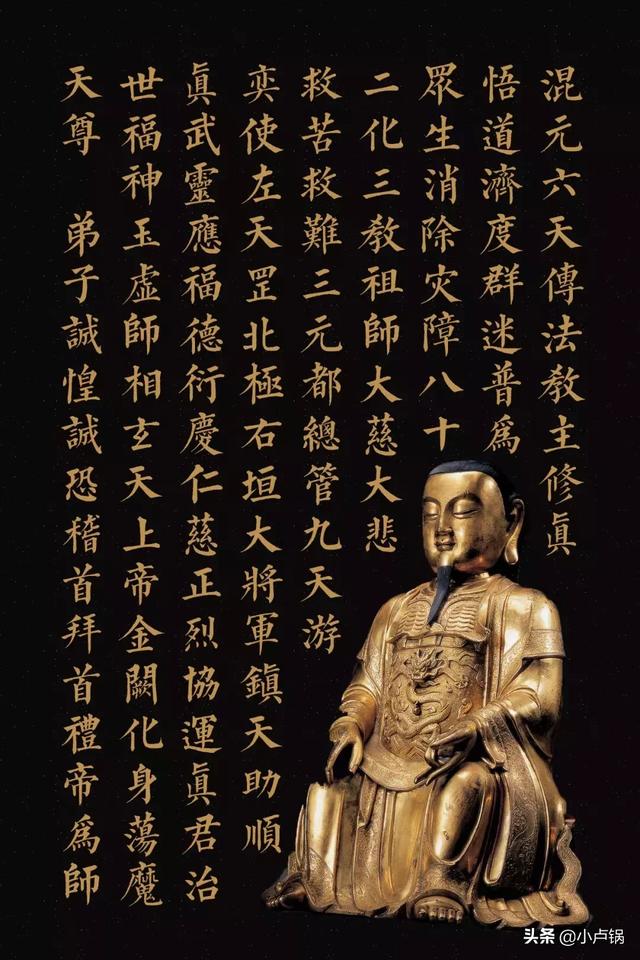 混元六天傳法教主修眞
悟道濟度群迷普爲
眾生消除灾障八十
二化三教祖師大慈大悲
救苦救難三元都總管九天游
奕使左天罡北極右垣大將軍鎮天助順
眞武靈應福德衍慶仁慈正烈協運眞君治
世福神玉虛師相玄天上帝金闕化身蕩魔
天尊　弟子誠惶誠恐稽首拜首禮帝爲師
头条 @小卢锅